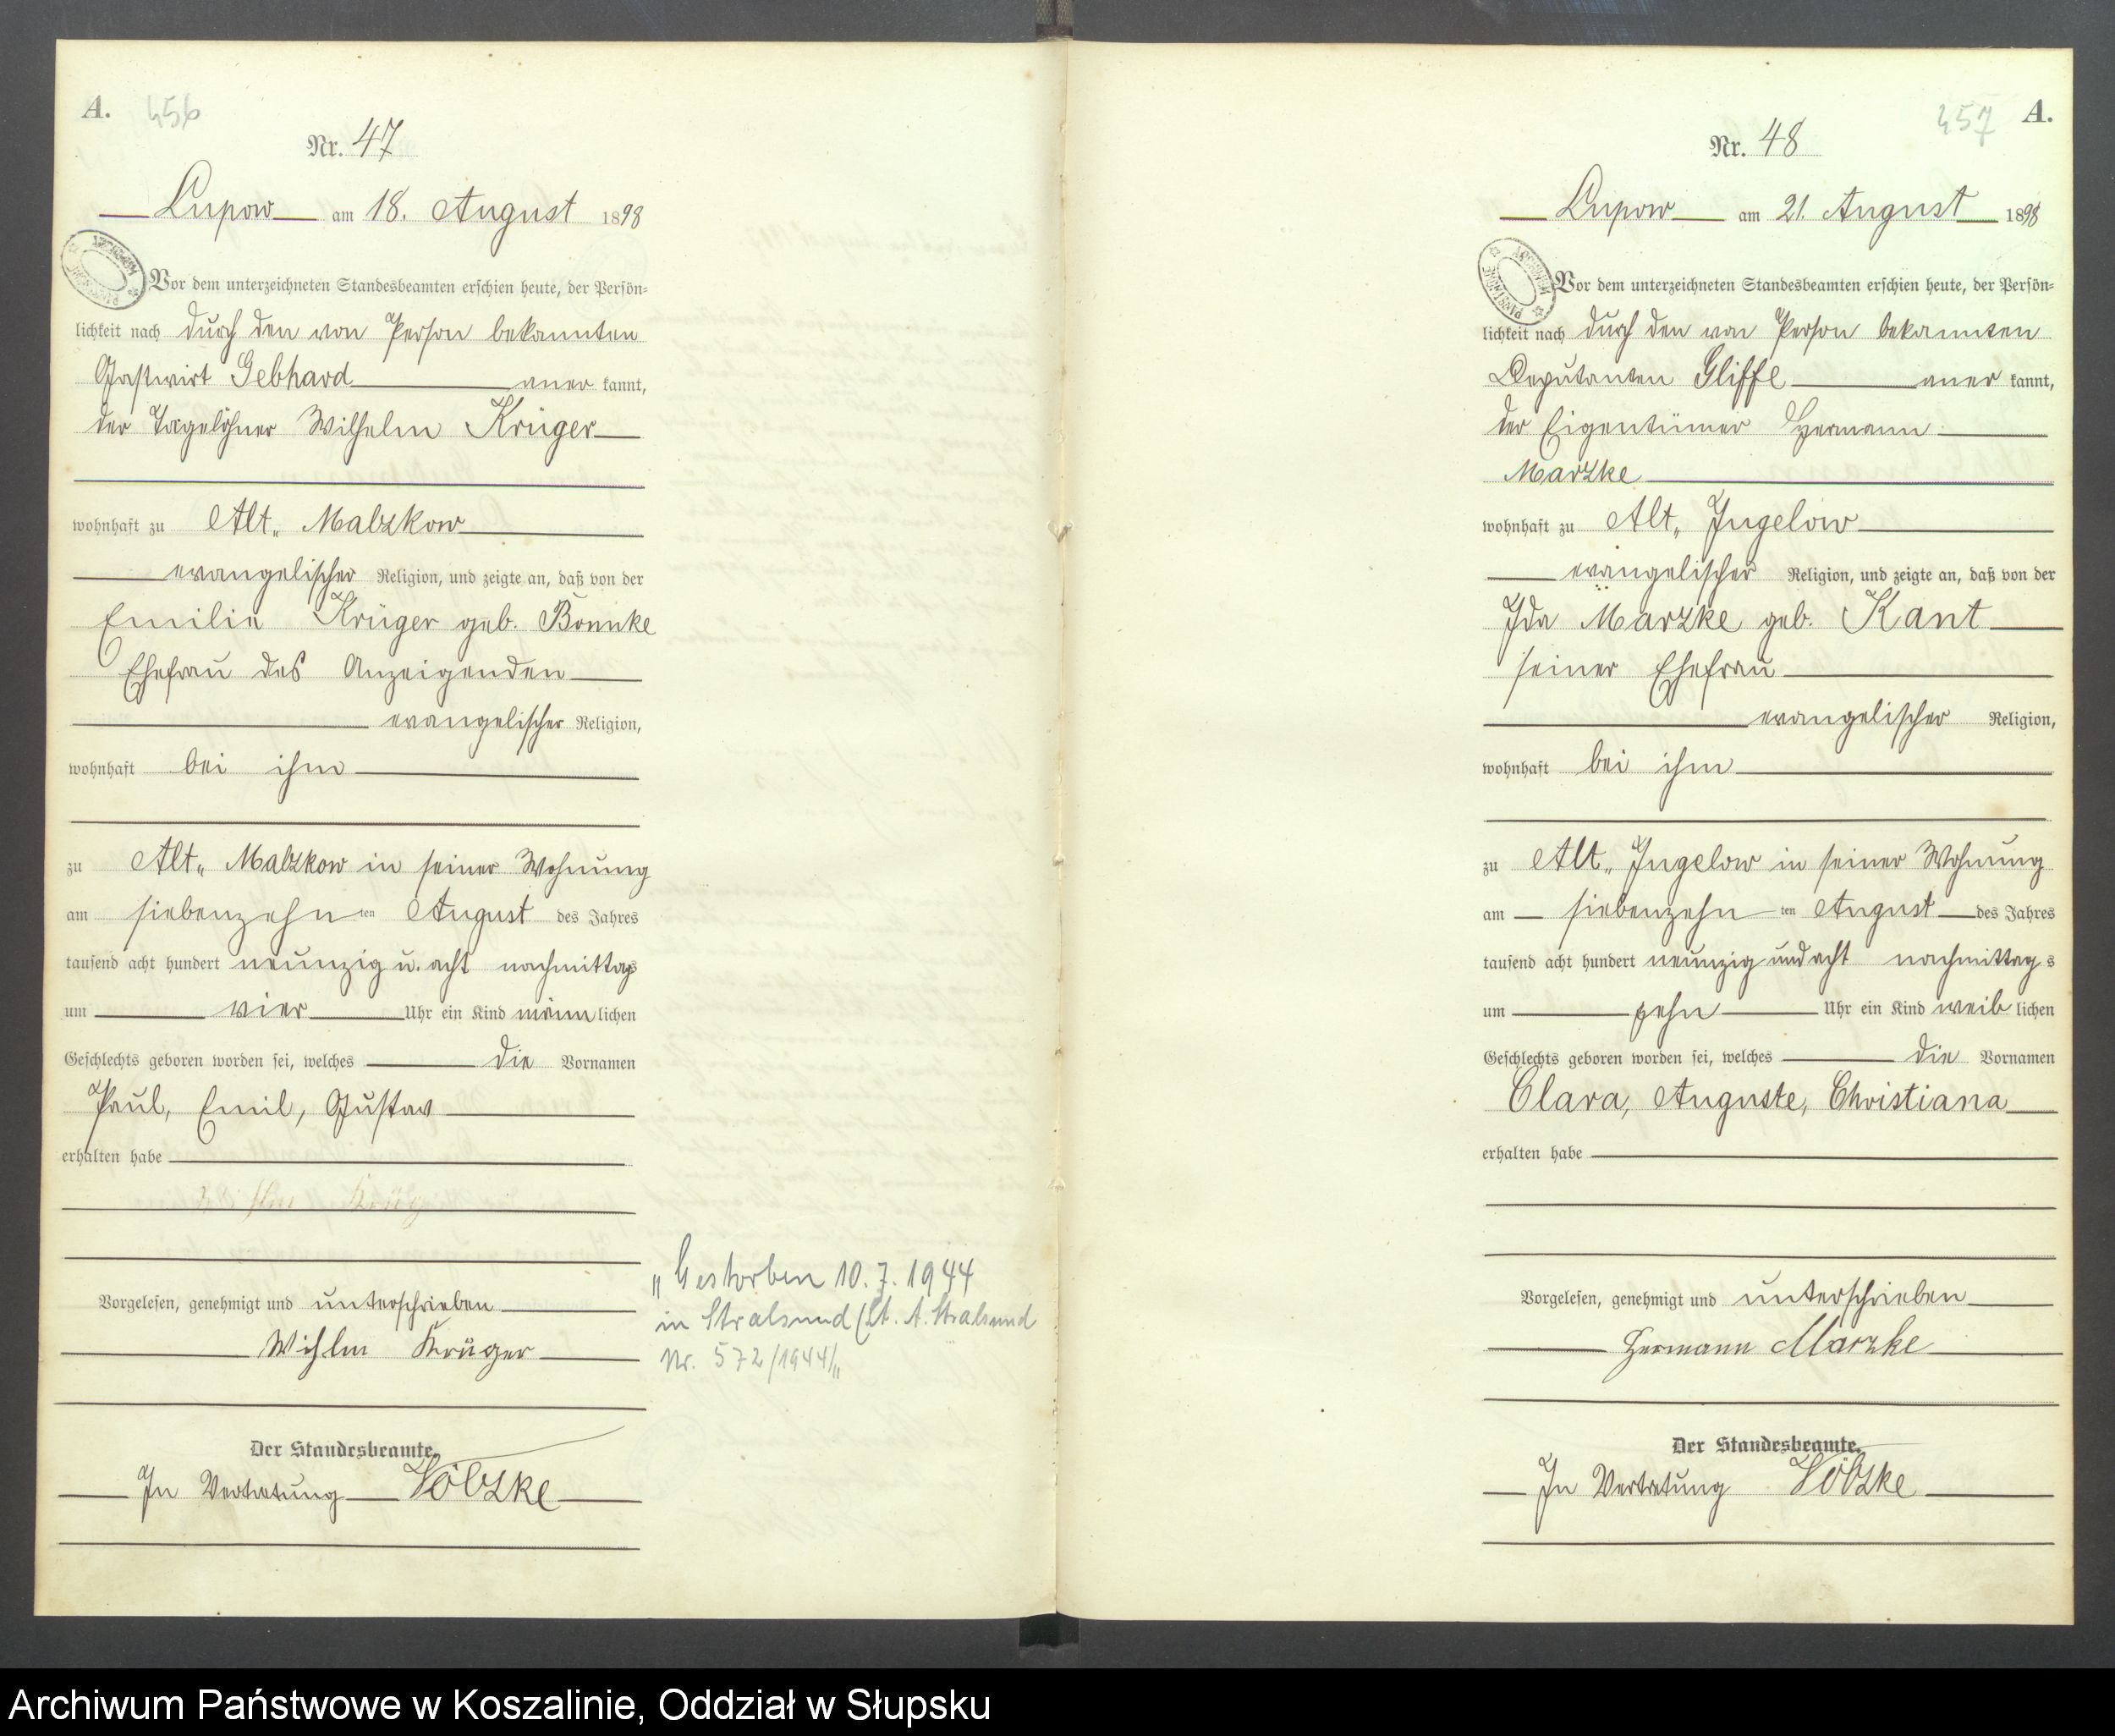 A. 456
Nr. 47
Lupow am 18. August 1898
Vor dem unterzeichneten Standesbeamten erschien heute, der Persön=
lichkeit nach durch den von Person bekannten
Gastwirt Gebhard aner kannt,
der Tagelöhner Wilhelm Krüger
wohnhaft zu Alt„ Malzkow
evangelischer Religion, und zeigte an, daß von der
Emilie Krüger geb. Bonnke
Ehefrau des Anzeigenden
evangelischer Religion,
wohnhaft bei ihm
zu Alt„ Malzkow in seiner Wohnung
am siebenzehn ten August des Jahres
tausend acht hundert neunzig u. acht nachmittags
um vier Uhr ein Kind männ lichen
Geschlechts geboren worden sei, welches die Vornamen
Paul, Emil, Gustav
erhalten habe
Vorgelesen, genehmigt und unterschrieben
Wihlm Krüger
Der Standesbeamte.
In Vertretung
„Gestorben 10.7.1944
in Stralsund (St. A. Stralsund
Nr. 572/1944/„
457 A.
Nr. 48
Lupow am 21. August 1898
Vor dem unterzeichneten Standesbeamten erschien heute, der Persön=
lichkeit nach durch den von Person bekannten
Deputanten Gliffe aner kannt,
der Eigentümer Hermann
Marzke
wohnhaft zu Alt„ Jugelow
evangelischer Religion, und zeigte an, daß von der
Ida Marzke geb. Kant
seiner Ehefrau
evangelischer Religion,
wohnhaft bei ihm
zu Alt„ Jugelow in seiner Wohnung
am siebenzehn ten August des Jahres
tausend acht hundert neunzig und acht nachmittag s
um zehn Uhr ein Kind weib lichen
Geschlechts geboren worden sei, welches die Vornamen
Clara, Auguste, Christiana
erhalten habe
Vorgelesen, genehmigt und unterschrieben
Hermann Marzke
Der Standesbeamte.
In Vertretung
Archiwum Państwowe w Koszalinie, Oddział w Słupsku